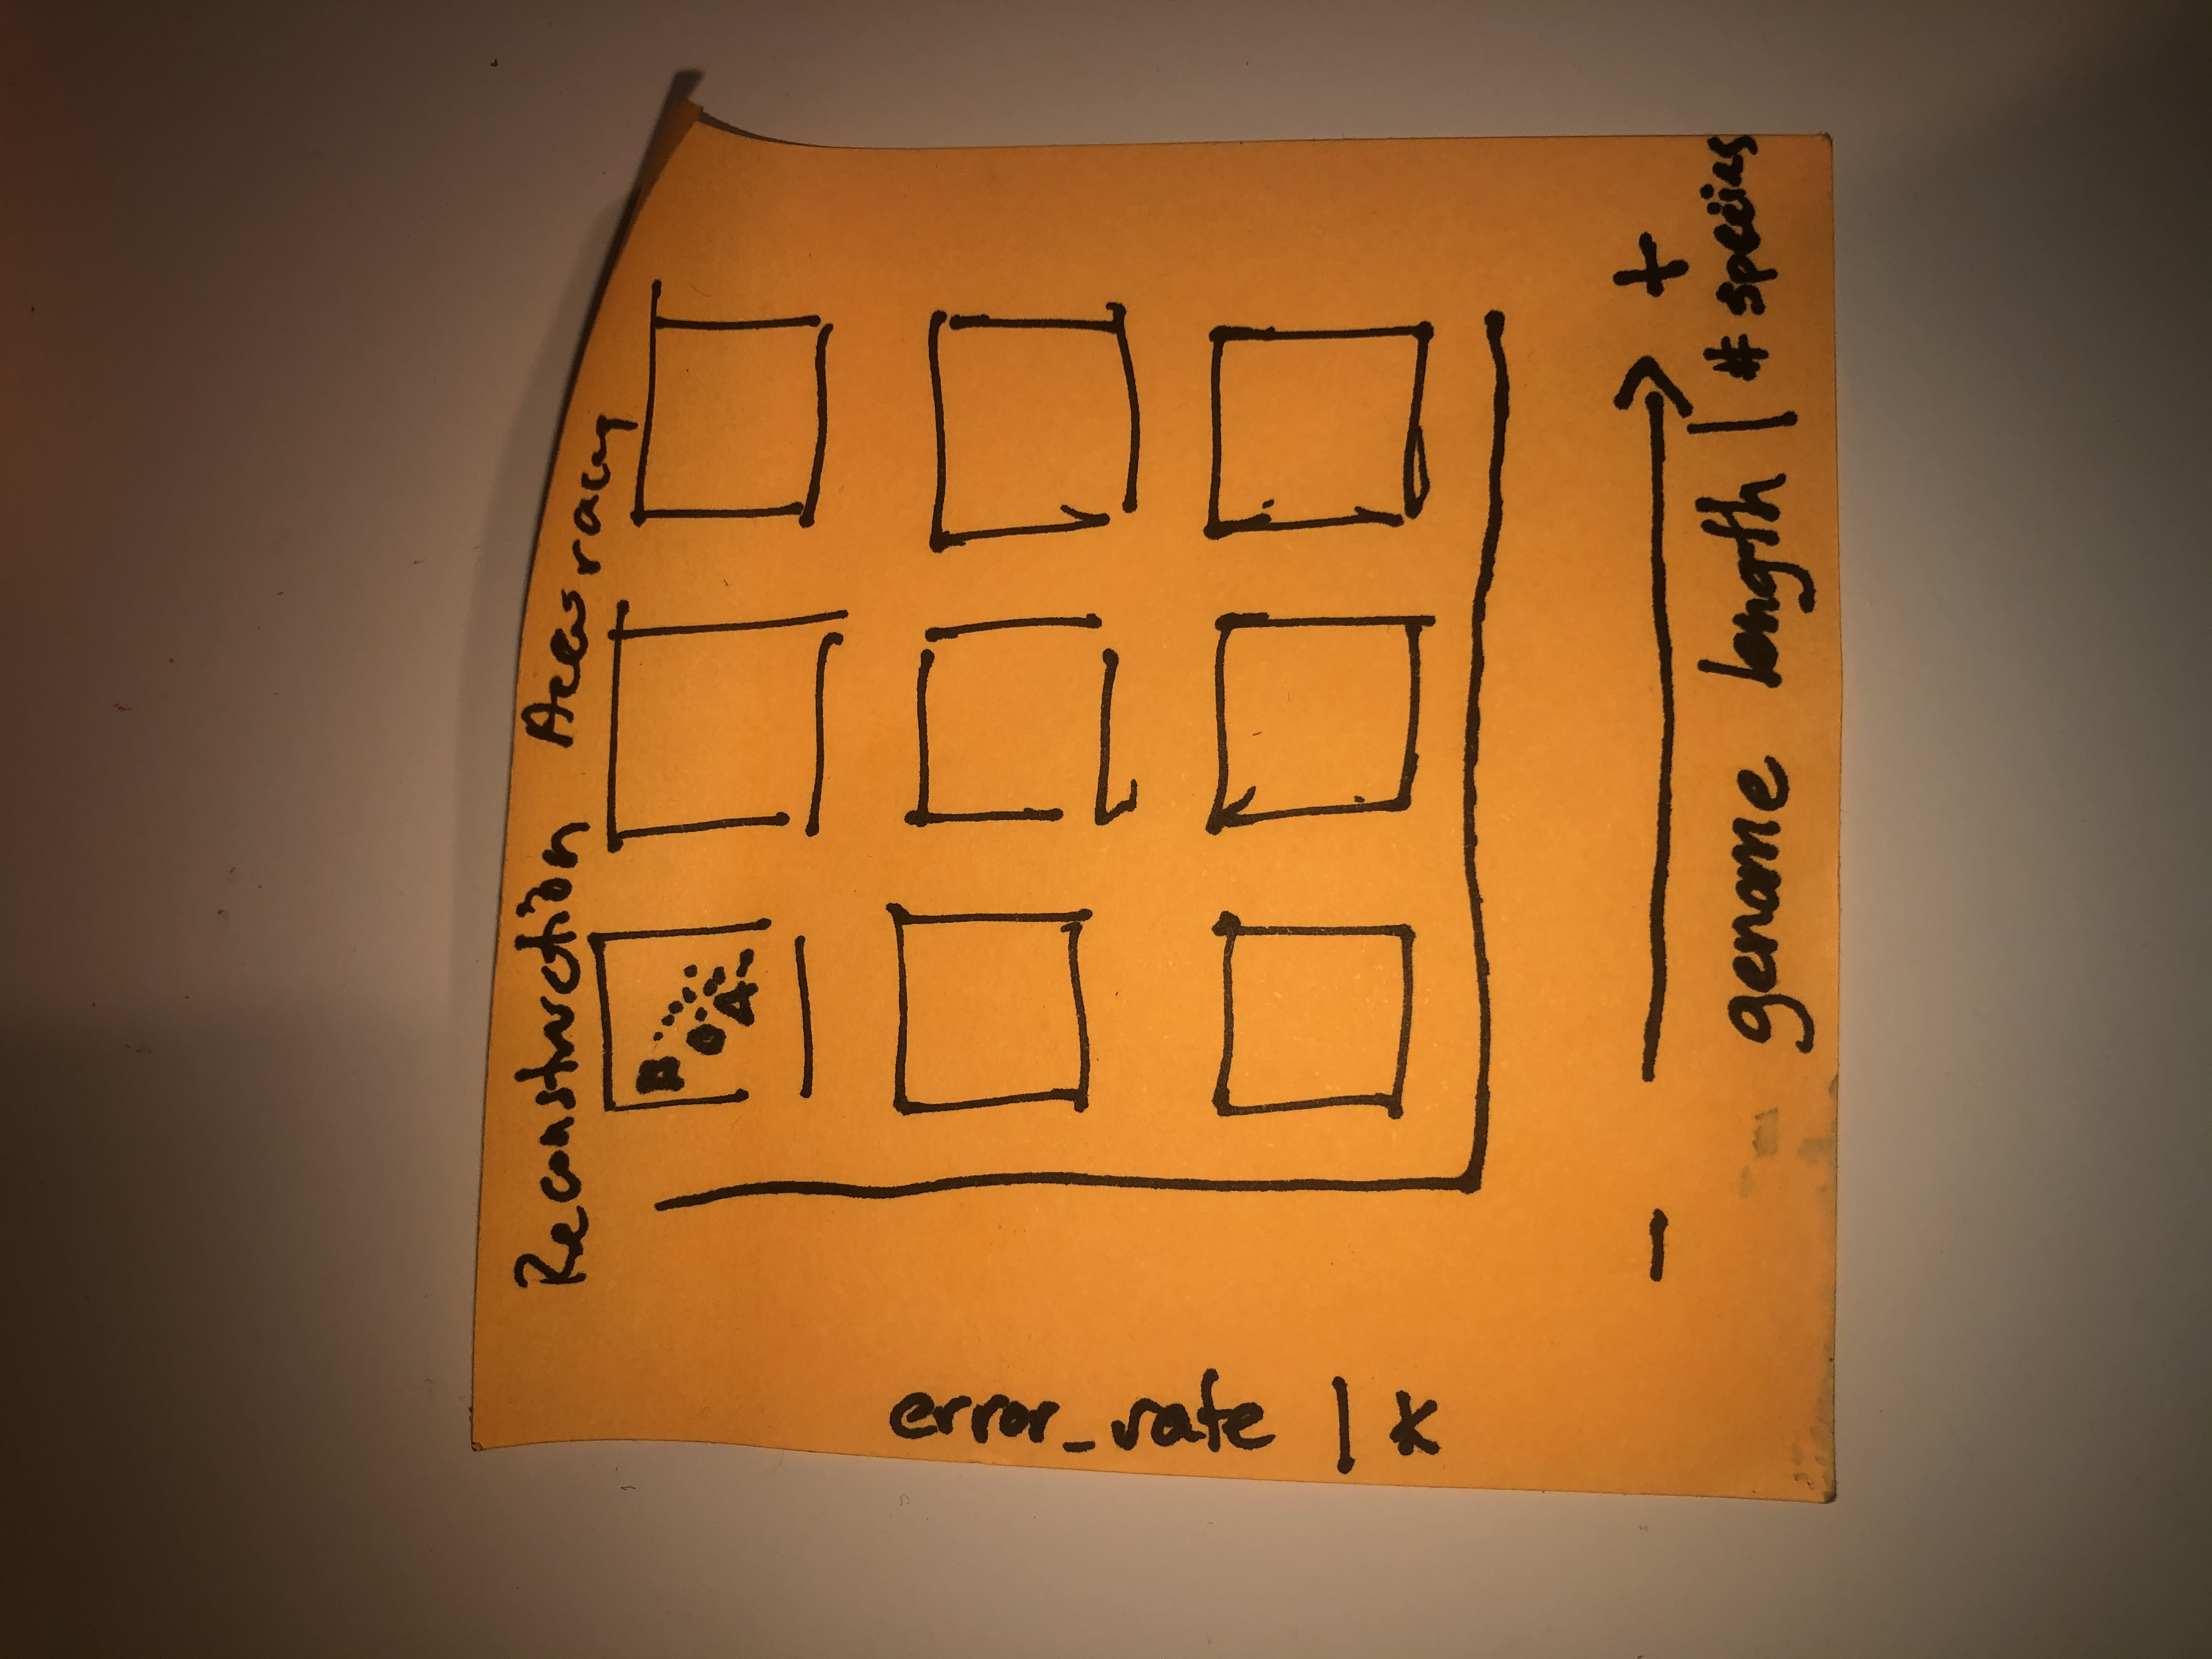 Reconstruction Accuracy
error_rate | *
- +
genome length | # species